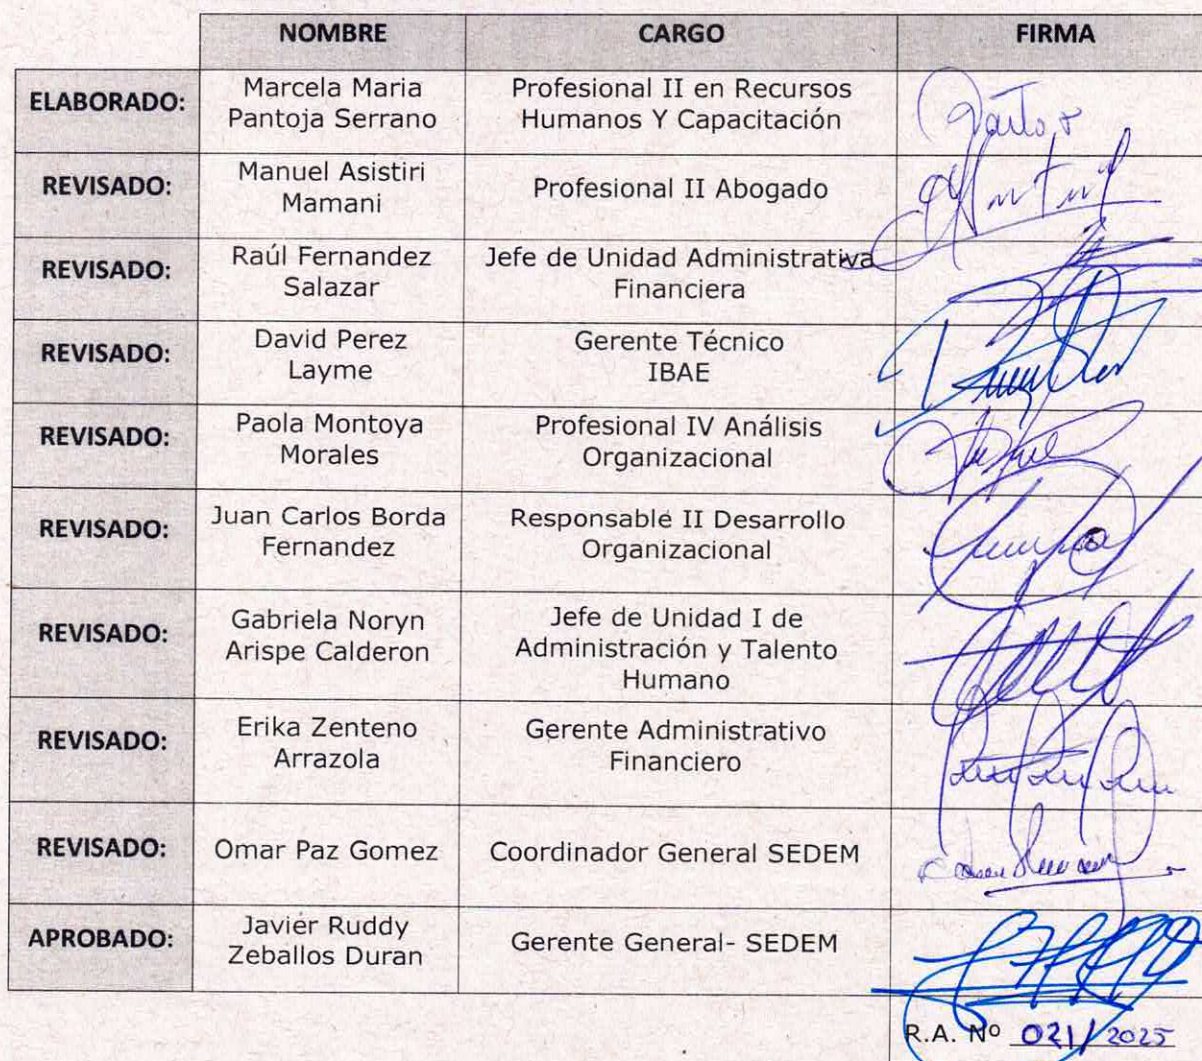 NOMBRE CARGO FIRMA
ELABORADO: Marcela Maria Pantoja Serrano Profesional II en Recursos Humanos Y Capacitación
REVISADO: Manuel Asistiri Mamani Profesional II Abogado
REVISADO: Raúl Fernandez Salazar Jefe de Unidad Administrativa Financiera
REVISADO: David Perez Layme Gerente Técnico IBAE
REVISADO: Paola Montoya Morales Profesional IV Análisis Organizacional
REVISADO: Juan Carlos Borda Fernandez Responsable II Desarrollo Organizacional
REVISADO: Gabriela Noryn Arispe Calderon Jefe de Unidad I de Administración y Talento Humano
REVISADO: Erika Zenteno Arrazola Gerente Administrativo Financiero
REVISADO: Omar Paz Gomez Coordinador General SEDEM
APROBADO: Javier Ruddy Zeballos Duran Gerente General- SEDEM
R.A. Nº 021/2025